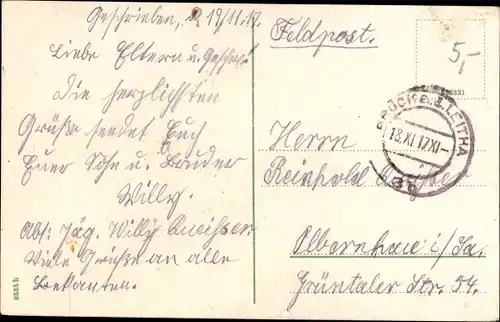 Geschrieben, d. 19/11.17
Liebe Eltern u. Geschw.
Die herzlichsten
Grüße sendet Euch
Euer Sohn u. Bruder
Willy.
Abs: Jäg. Willy
Viele Grüße an alle
Bekannten.
8585 b
Feldpost.
5,-
BRUCK a. d. LEITHA
18.XI.17.XI-
3b
Herrn
Reinhold
Olbernhau i/Sa.
Grüntaler Str. 54.